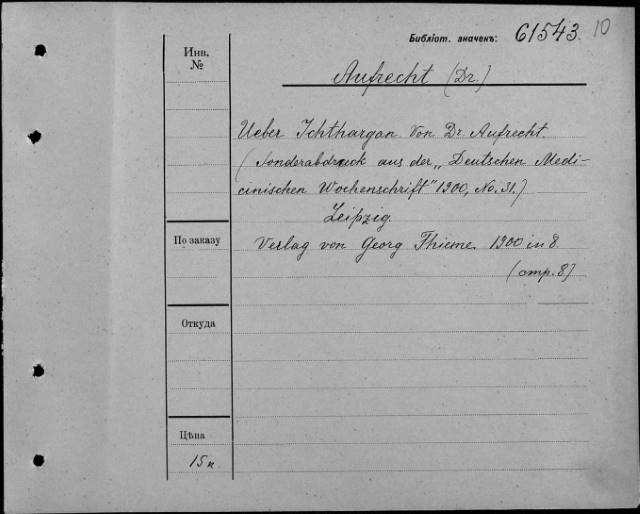 Библіот. значекъ: 61543. 10
Инв.
№
Aufrecht (Dr.)
Ueber Ichthargan. Von Dr. Aufrecht.
(Sonderabdruck aus der „Deutschen Medi-
cinischen Wochenschrift" 1900, No. 31.)
Leipzig.
По заказу
Verlag von Georg Thieme. 1900 in 8.
(стр. 8)
Откуда
Цѣна
15 к.